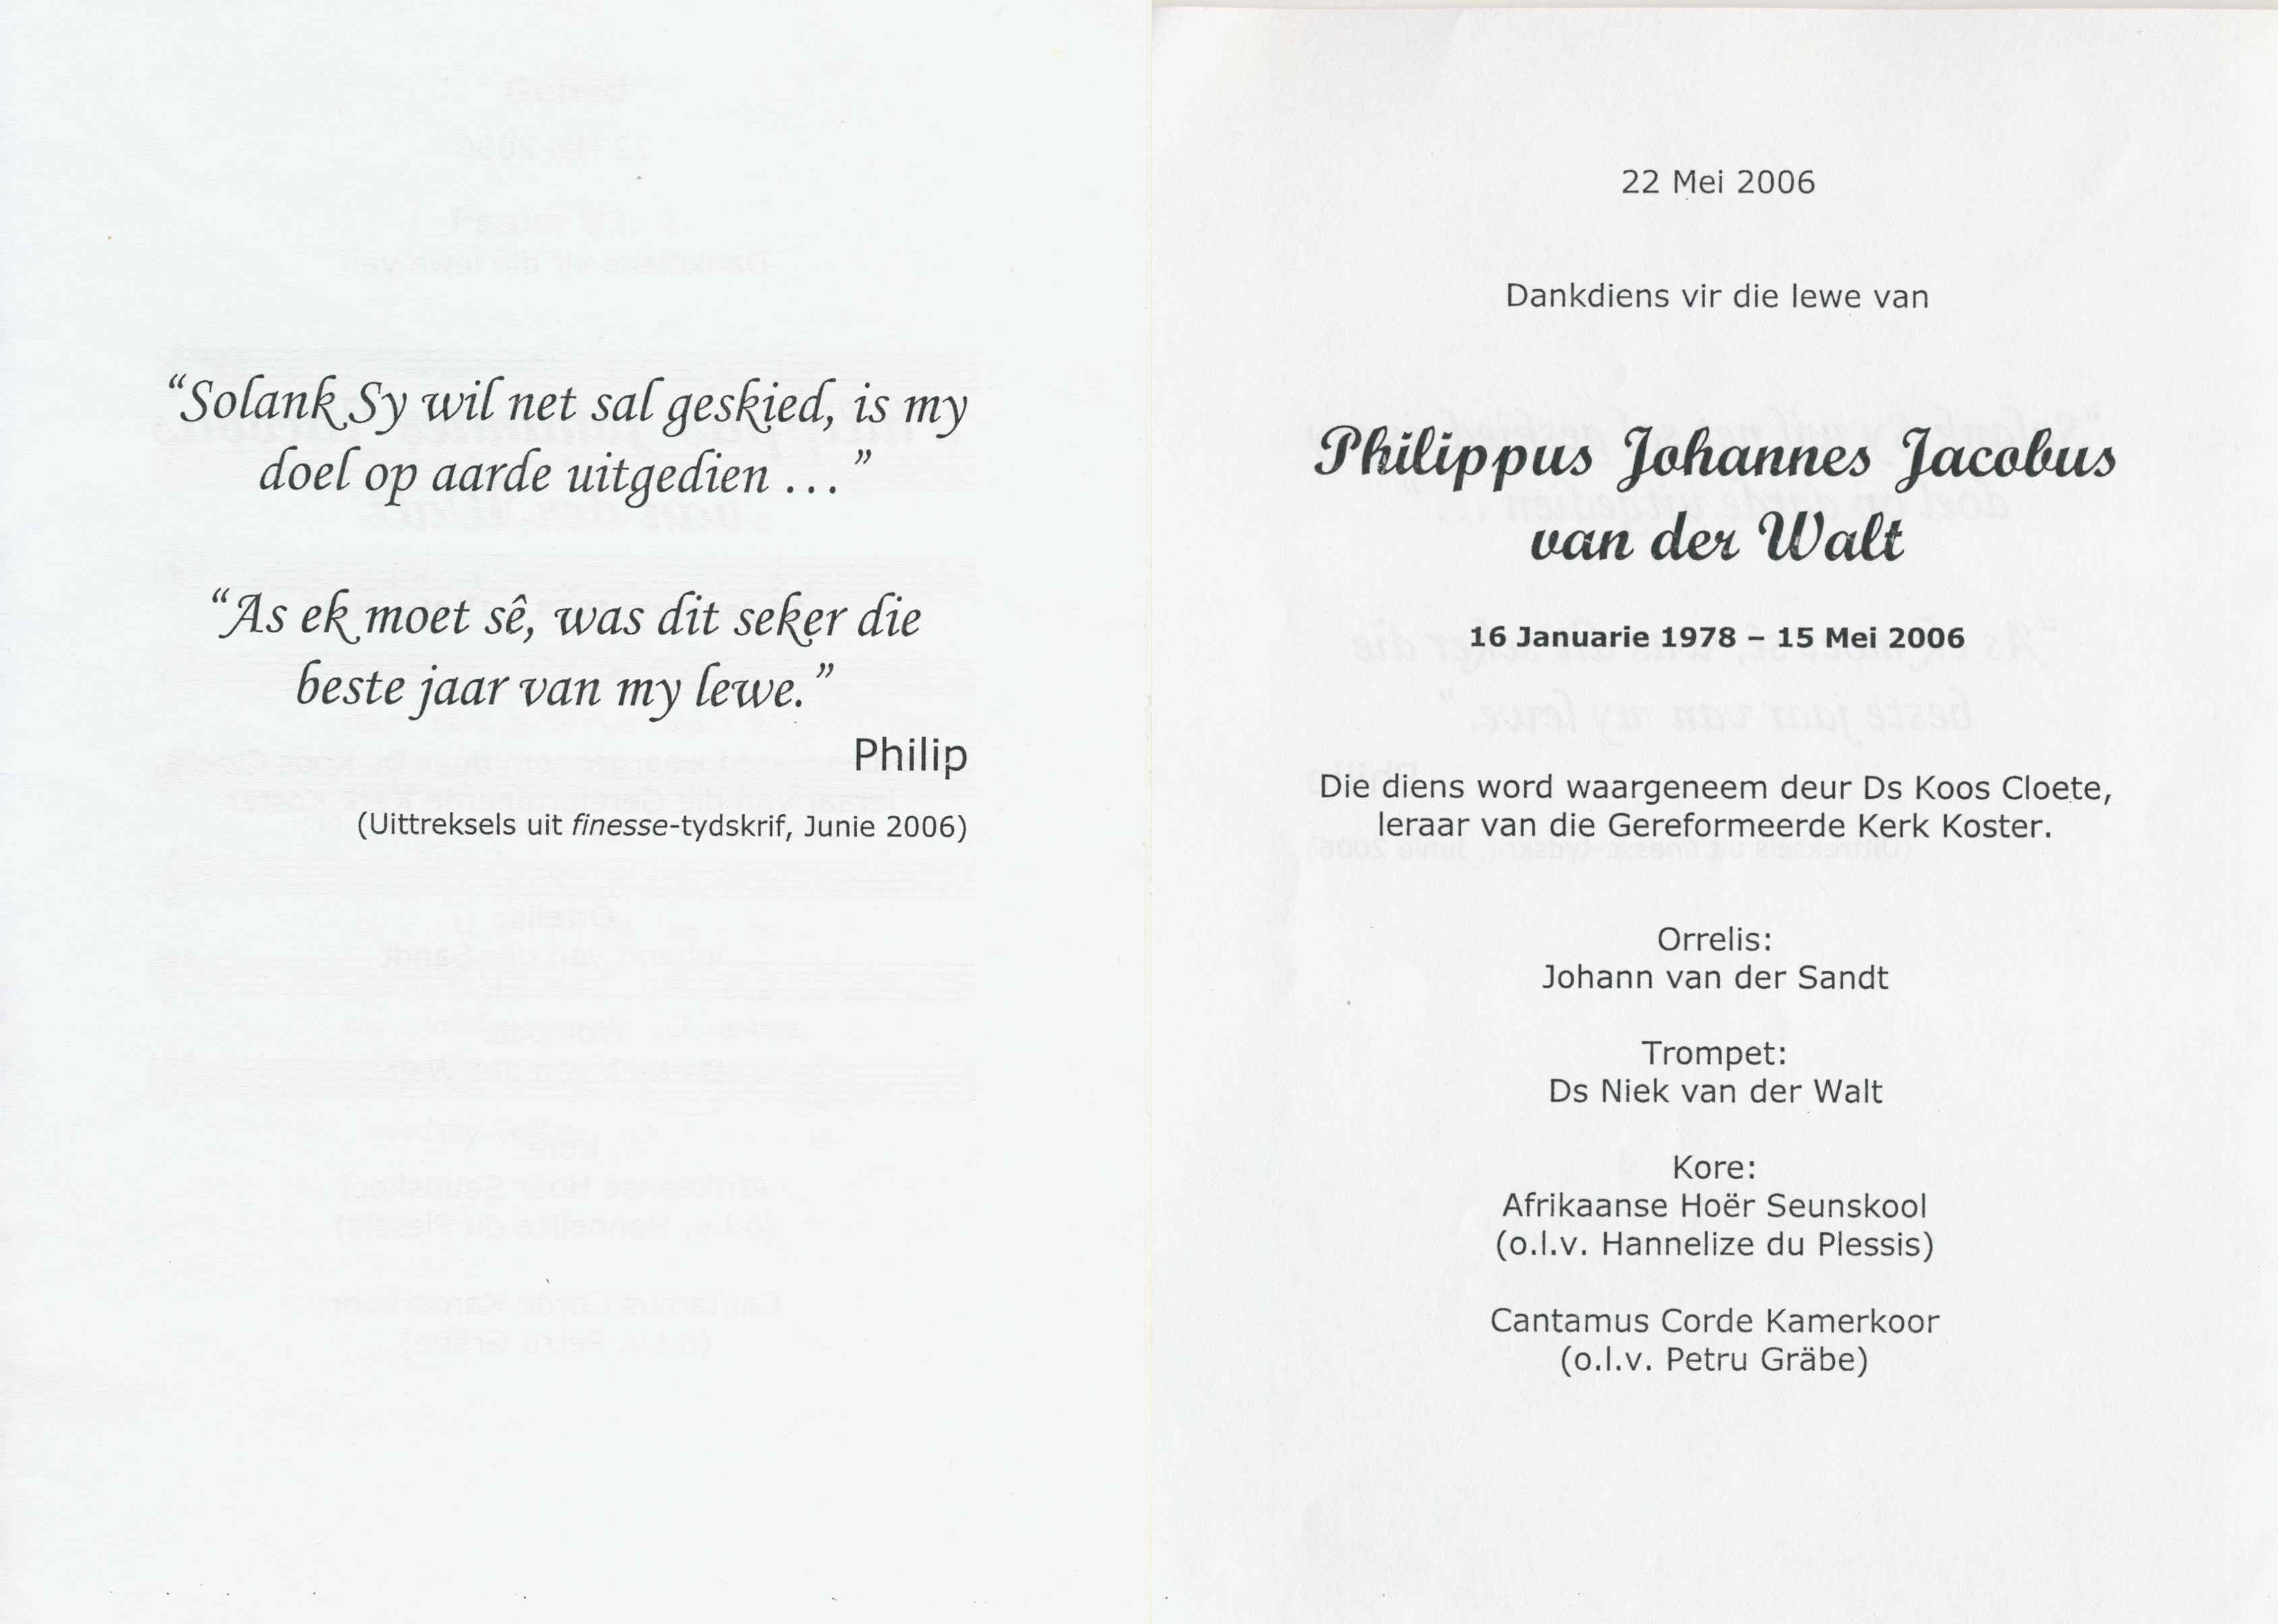 “Solank Sy wil net sal geskied, is my
doel op aarde uitgedien ...”
“As ek moet sê, was dit seker die
beste jaar van my lewe.”
Philip
(Uittreksels uit finesse-tydskrif, Junie 2006)
22 Mei 2006
Dankdiens vir die lewe van
Philippus Johannes Jacobus
van der Walt
16 Januarie 1978 – 15 Mei 2006
Die diens word waargeneem deur Ds Koos Cloete,
leraar van die Gereformeerde Kerk Koster.
Orrelis:
Johann van der Sandt
Trompet:
Ds Niek van der Walt
Kore:
Afrikaanse Hoër Seunskool
(o.l.v. Hannelize du Plessis)
Cantamus Corde Kamerkoor
(o.l.v. Petru Gräbe)